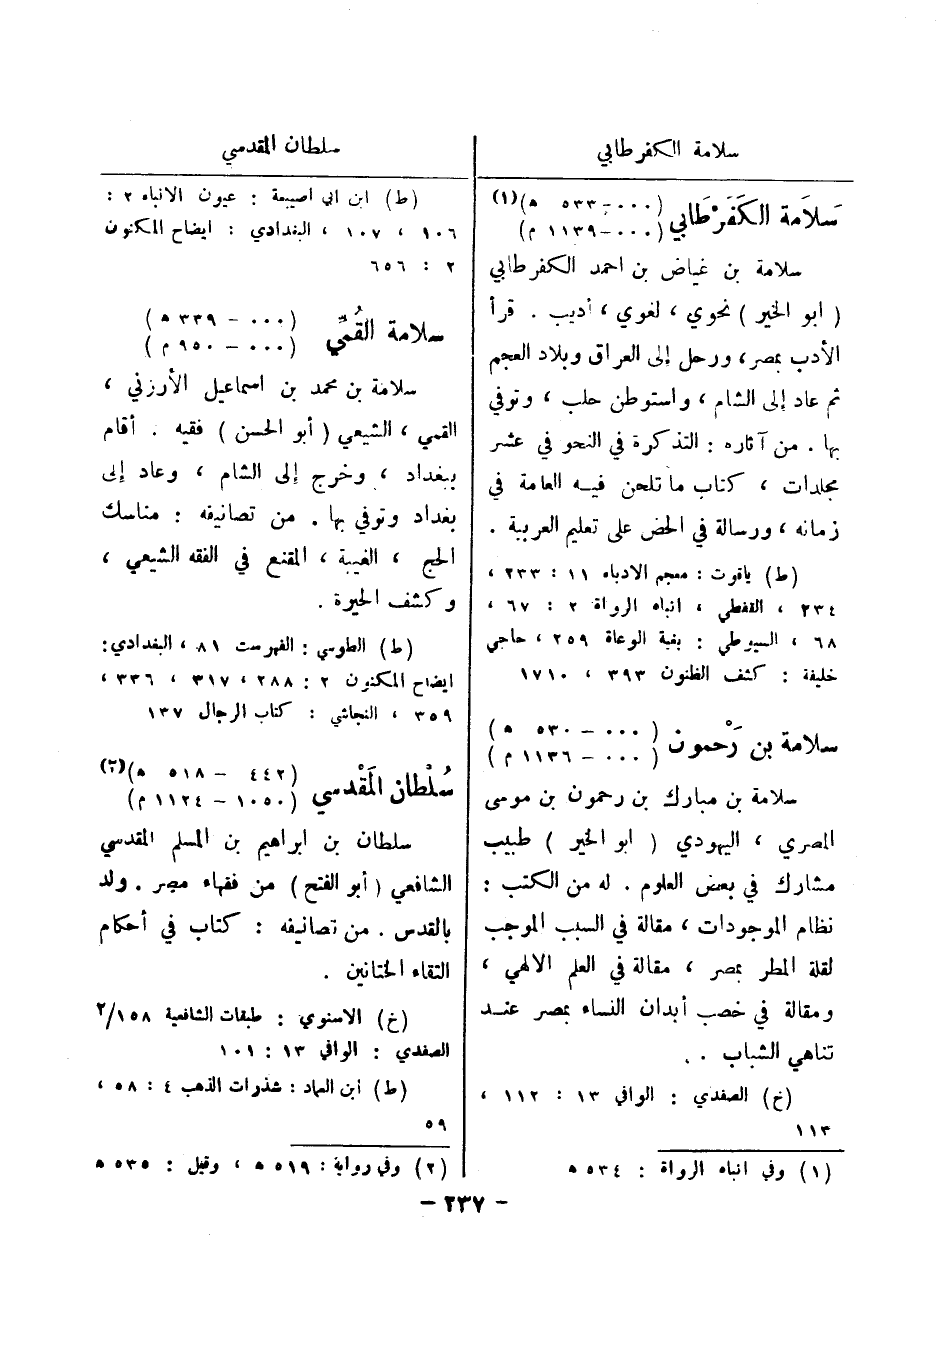 سلامة الكفرطابي
سَلَامة الكَفَرْطَابي (٠٠٠ – ٥٣٣ ه)(١)
(٠٠٠ – ١١٣٩ م)
سلامة بن غياض بن احمد الكفرطابي
( ابو الخير ) نحوي ، لغوي ، أديب . قرأ
الأدب بمصر، ورحل إلى العراق وبلاد العجم
ثم عاد إلى الشام ، واستوطن حلب ، وتوفي
بها . من آثاره : التذكرة في النحو في عشر
مجلدات ، كتاب ما تلحن فيه العامة في
زمانه ، ورسالة في الحض على تعليم العربية .
(ط) ياقوت : معجم الادباء ١١ : ٢٣٣ ،
٢٣٤ ، القفطي ، انباه الرواة ٢ : ٦٧ ،
٦٨ ، السيوطي : بغية الوعاة ٢٥٩ ، حاجي
خليفة : كشف الظنون ٣٩٣ ، ١٧١٠
سلامة بن رَحْمون ( ٠٠٠ – ٥٣٠ ه )
( ٠٠٠ – ١١٣٦ م )
سلامة بن مبارك بن رحمون بن موسى
المصري ، اليهودي ( ابو الخير ) طبيب
مشارك في بعض العلوم . له من الكتب :
نظام الموجودات ، مقالة في السبب الموجب
لقلة المطر بمصر ، مقالة في العلم الالهي ،
ومقالة في خصب أبدان النساء بمصر عند
تناهي الشباب . .
(خ) الصفدي : الوافي ١٣ : ١١٢ ،
١١٣
(١) وفي انباه الرواة : ٥٣٤ ه
سلطان المقدسي
(ط) ابن ابي اصيبعة : عيون الانباء ٢ :
١٠٦ ، ١٠٧ ، البغدادي : ايضاح المكنون
٢ : ٦٥٦
سلامة القُمّي (٠٠٠ – ٣٣٩ ه )
(٠٠٠ – ٩٥٠ م )
سلامة بن محمد بن اسماعيل الأرزني ،
القمي ، الشيعي ( أبو الحسن ) فقيه . أقام
ببغداد ، وخرج إلى الشام ، وعاد إلى
بغداد وتوفي بها . من تصانيفه : مناسك
الحج ، الغيبة ، المقنع في الفقه الشيعي ،
وكشف الحيرة .
(ط) الطوسي : الفهرست ٨١ ، البغدادي:
ايضاح المكنون ٢ : ٢٨٨ ، ٣١٧ ، ٣٣٦ ،
٣٥٩ ، النجاشي : كتاب الرجال ١٣٧
سُلْطان المَقْدسي (٤٤٢ – ٥١٨ ه)(٢)
(١٠٥٠ – ١١٢٤ م)
سلطان بن ابراهيم بن المسلم المقدسي
الشافعي ( أبو الفتح ) من فقهاء مصر . ولد
بالقدس . من تصانيفه : كتاب في أحكام
التقاء الختانين .
(خ) الاسنوي : طبقات الشافعية ١٥٨/٢
الصفدي : الوافي ١٣ : ١٠١
(ط) ابن العماد : شذرات الذهب ٤ : ٥٨ ،
٥٩
(٢) وفي رواية : ٥١٩ ه ، وقيل : ٥٣٥ ه
– ٢٣٧ –